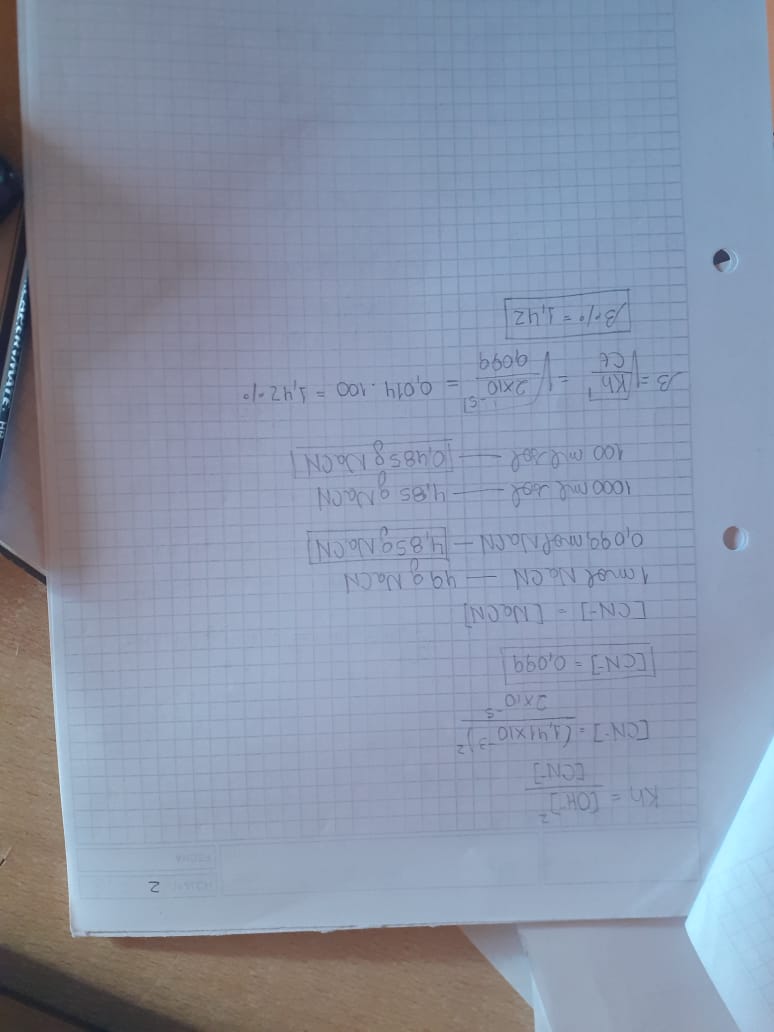 HOJA Nº 2
FECHA
Kh = [OH⁻]² / [CN⁻]
[CN⁻] = (1,41x10⁻³)² / 2x10⁻⁵
[CN⁻] = 0,099
[CN⁻] = [NaCN]
1 mol NaCN — 49g NaCN
0,099 mol NaCN — 4,85g NaCN
1000 ml sol — 4,85 g NaCN
100 ml sol — 0,485g NaCN
β = √(Kh / Ct) = √(2x10⁻⁵ / 0,099) = 0,014 . 100 = 1,42 %
β% = 1,42